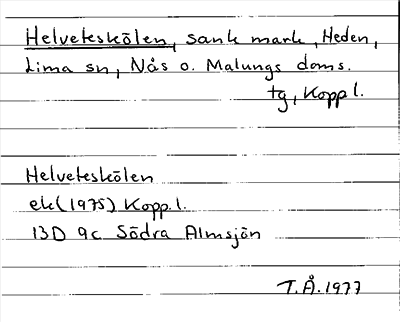 Helveteskölen, sank mark, Heden,
Lima sn, Nås o. Malungs doms.
tg, Kopp l.
Helveteskölen
ek (1975) Kopp. l.
13D 9c Södra Almsjön
T.Å. 1977